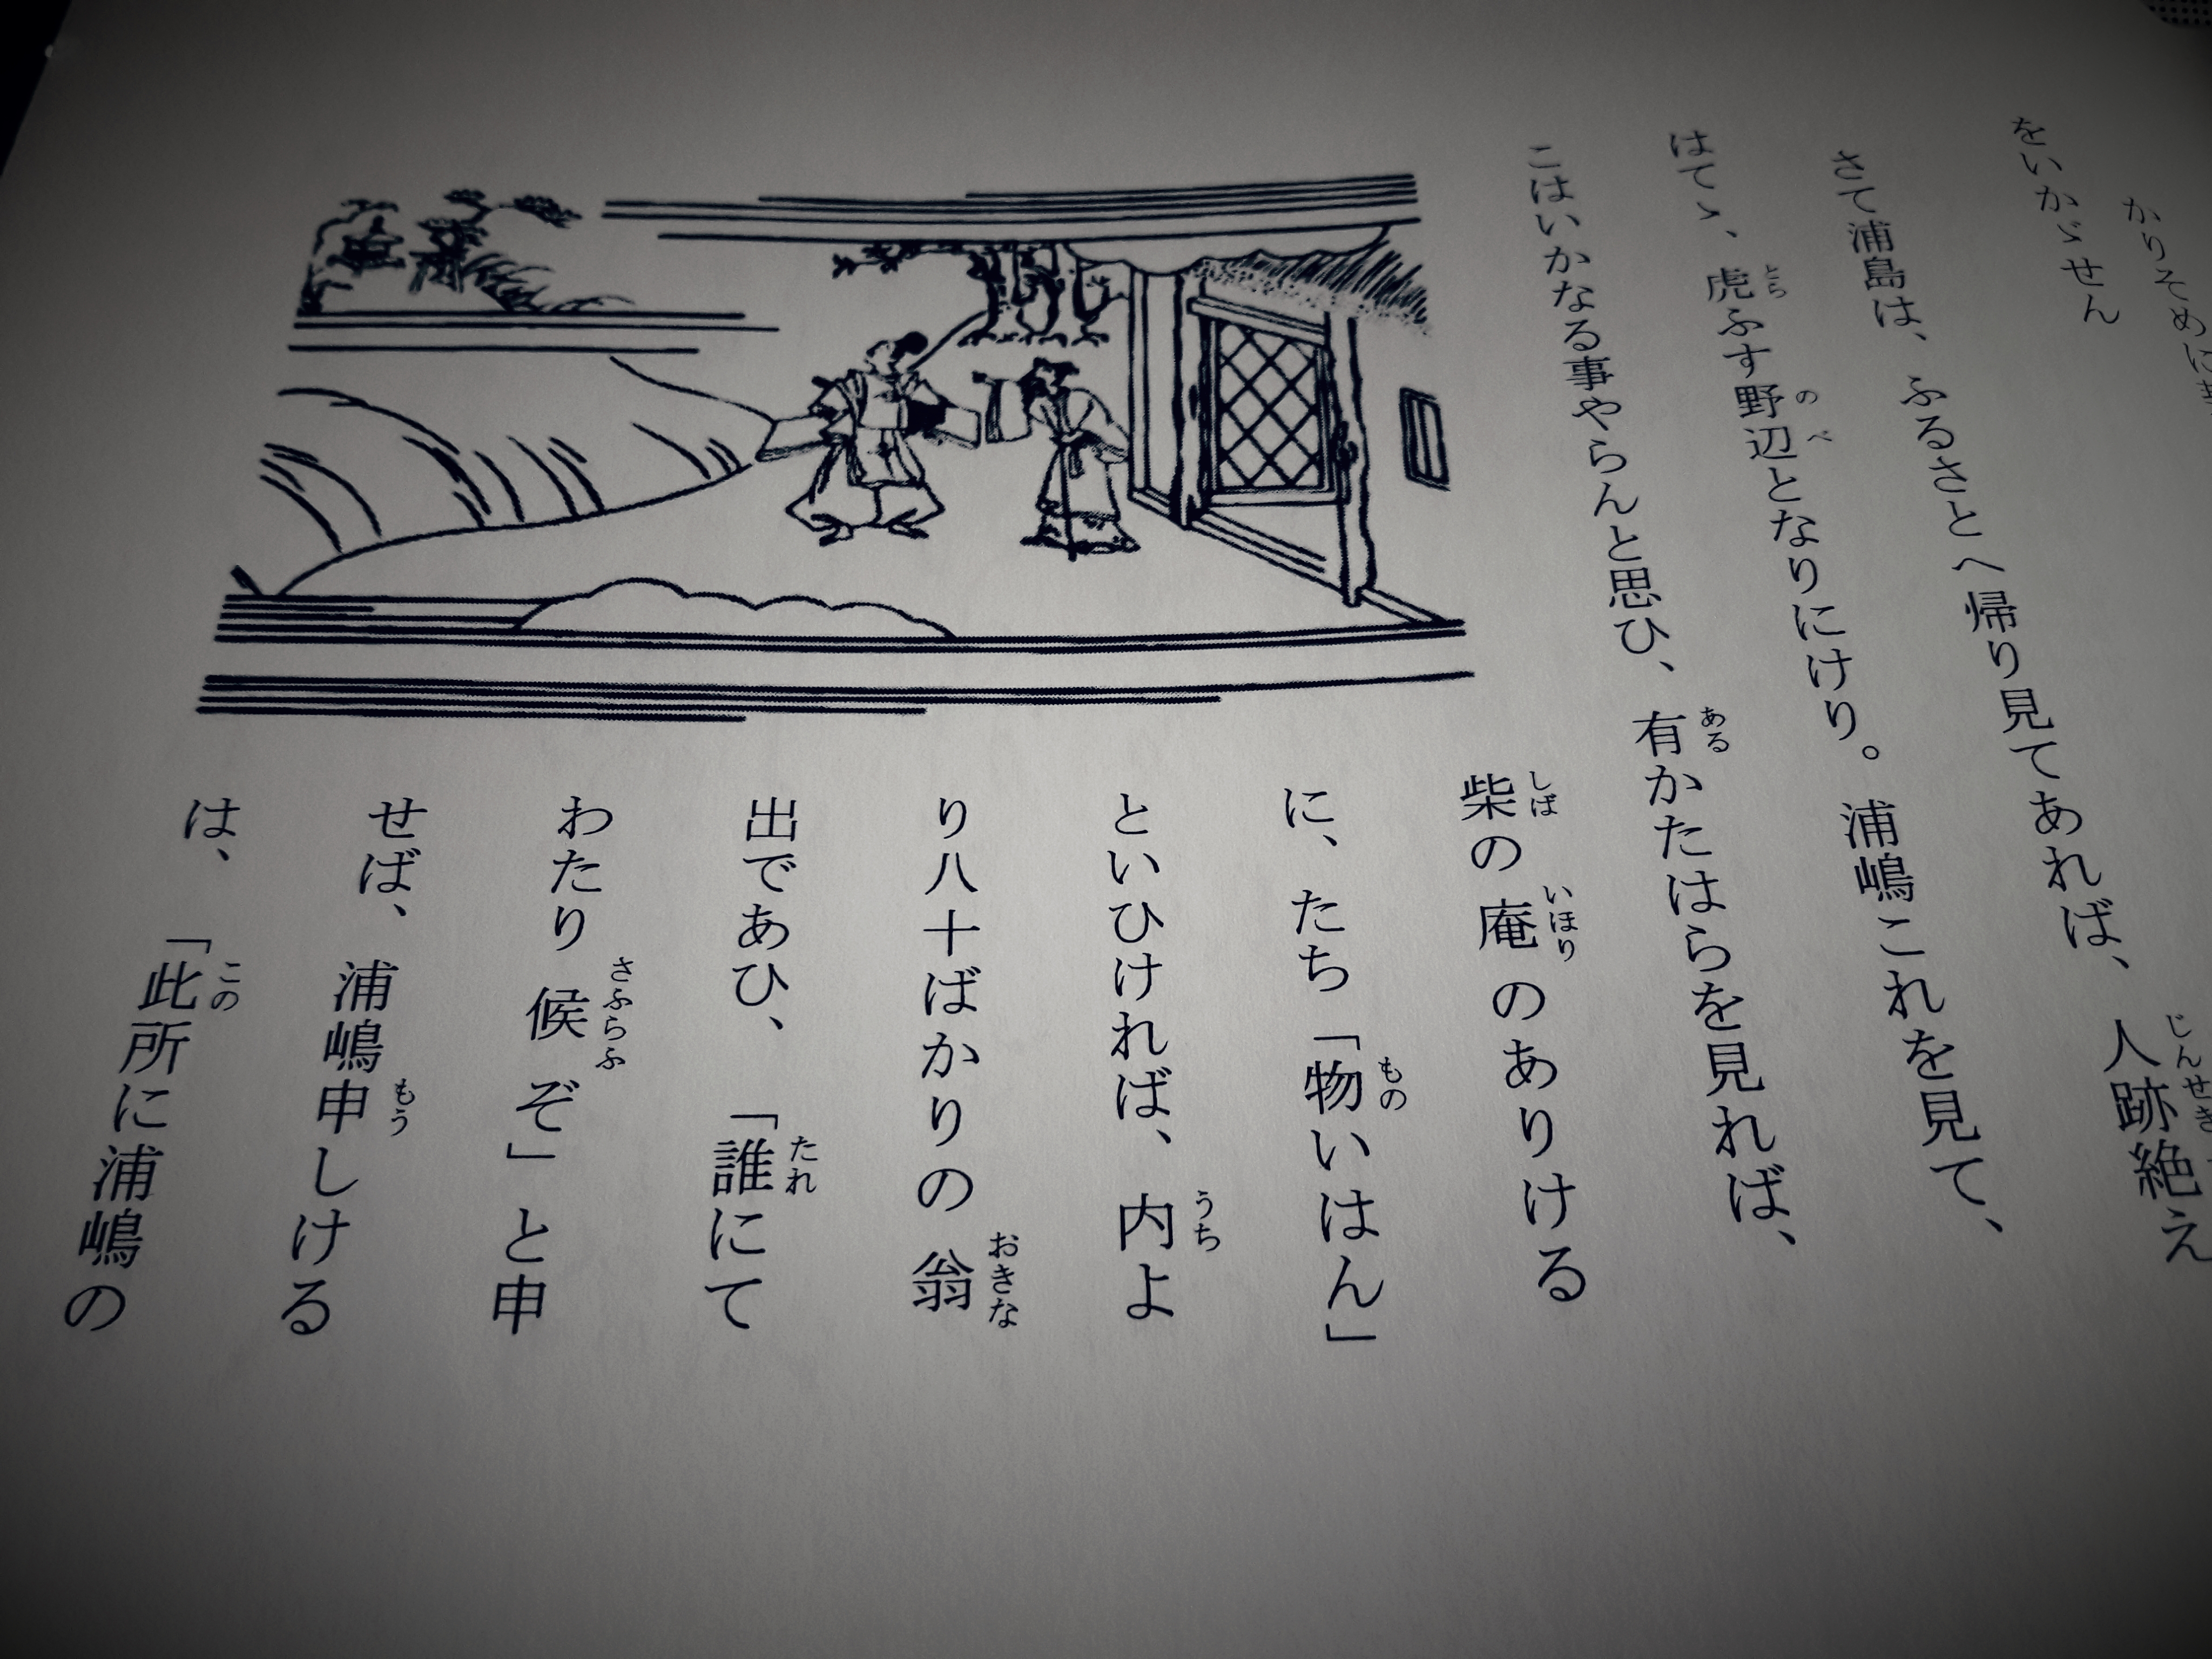 かりそめに
をいかゞせん
さて浦島は、ふるさとへ帰り見てあれば、人跡絶え
はてゝ、虎ふす野辺となりにけり。浦嶋これを見て、
こはいかなる事やらんと思ひ、有かたはらを見れば、
柴の庵のありける
に、たち「物いはん」
といひければ、内よ
り八十ばかりの翁
出であひ、「誰にて
わたり候ぞ」と申
せば、浦嶋申しける
は、「此所に浦嶋の